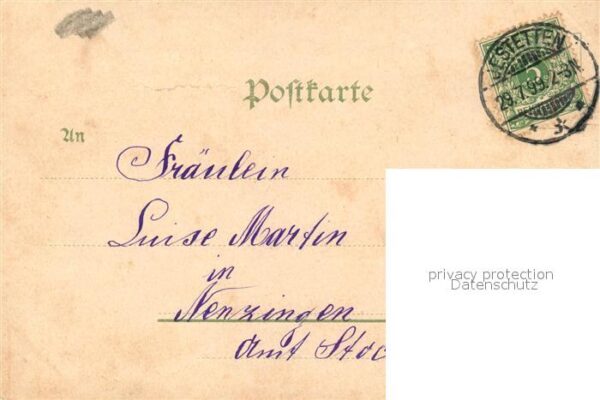 JESTETTEN
29.7.99. 2-3N
3
Postkarte
An
Fräulein
Luise Martin
in
Nenzingen
Amt Stoc
privacy protection
Datenschutz